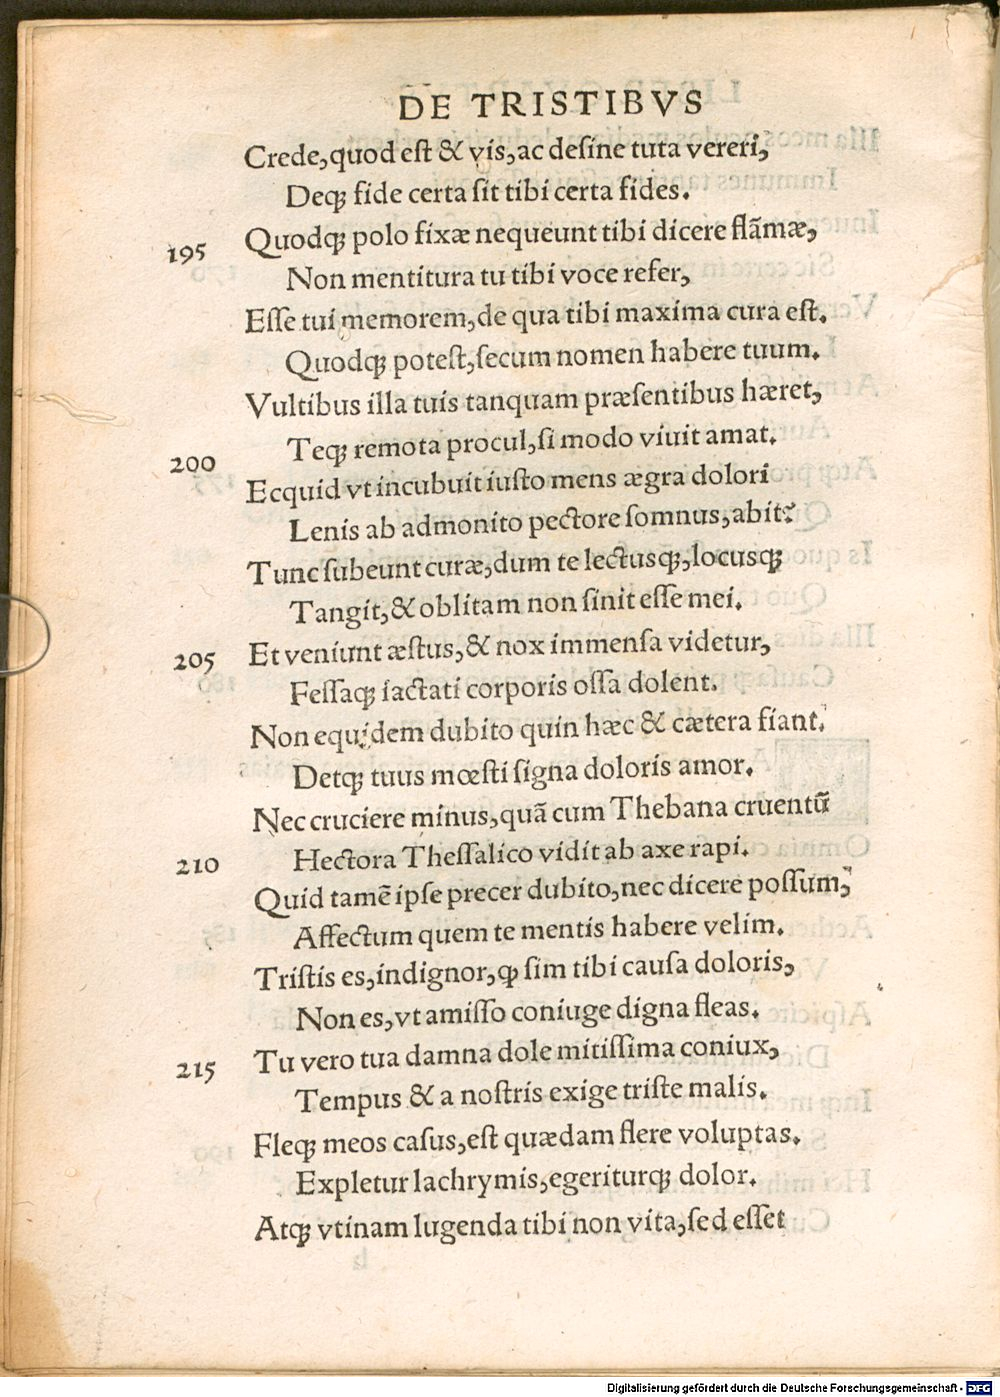 DE TRISTIBVS
Crede,quod eſt & vis,ac deſine tuta vereri,
Deqꝫ fide certa ſit tibi certa fides.
195 Quodqꝫ polo fixæ nequeunt tibi dicere flāmæ,
Non mentitura tu tibi voce refer,
Eſſe tui memorem,de qua tibi maxima cura eſt.
Quodqꝫ poteſt,ſecum nomen habere tuum.
Vultibus illa tuis tanquam præſentibus hæret,
200 Teqꝫ remota procul,ſi modo viuit amat.
Ecquid vt incubuit iuſto mens ægra dolori
Lenis ab admonito pectore ſomnus,abit?
Tunc ſubeunt curæ,dum te lectusqꝫ,locusqꝫ
Tangit,& oblitam non ſinit eſſe mei.
205 Et veniunt æſtus,& nox immenſa videtur,
Feſſaqꝫ iactati corporis oſſa dolent.
Non equidem dubito quin hæc & cætera fiant.
Detqꝫ tuus mœſti ſigna doloris amor.
Nec cruciere minus,quā cum Thebana cruentū
210 Hectora Theſſalico vidit ab axe rapi.
Quid tamē ipſe precer dubito,nec dicere poſſum,
Affectum quem te mentis habere velim.
Triſtis es,indignor,ꝙ ſim tibi cauſa doloris,
Non es,vt amiſſo coniuge digna fleas.
215 Tu vero tua damna dole mitiſſima coniux,
Tempus & a noſtris exige triſte malis.
Fleqꝫ meos caſus,eſt quædam flere voluptas.
Expletur lachrymis,egeriturqꝫ dolor.
Atqꝫ vtinam lugenda tibi non vita,ſed eſſet
Digitalisierung gefördert durch die Deutsche Forschungsgemeinschaft - DFG